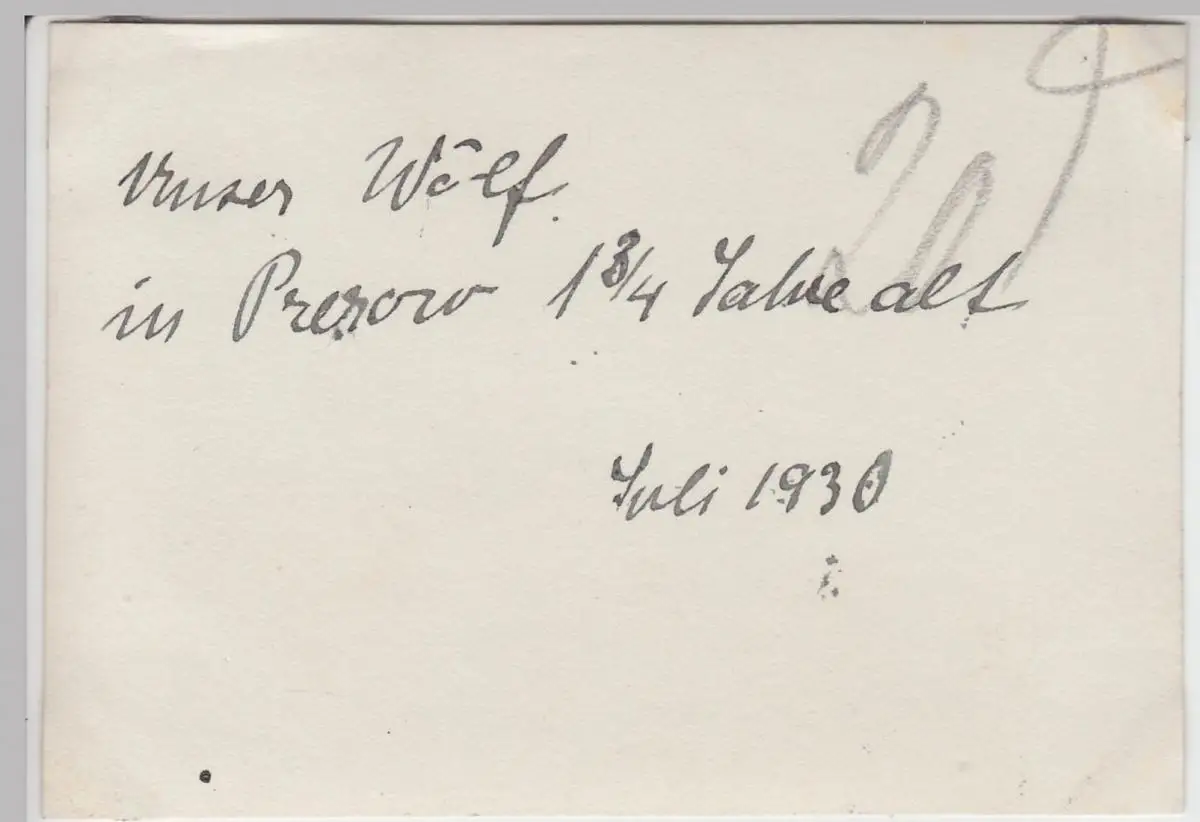 Unser Wölf.
in Prerow 1 3/4 Jahre alt
Juli 1930